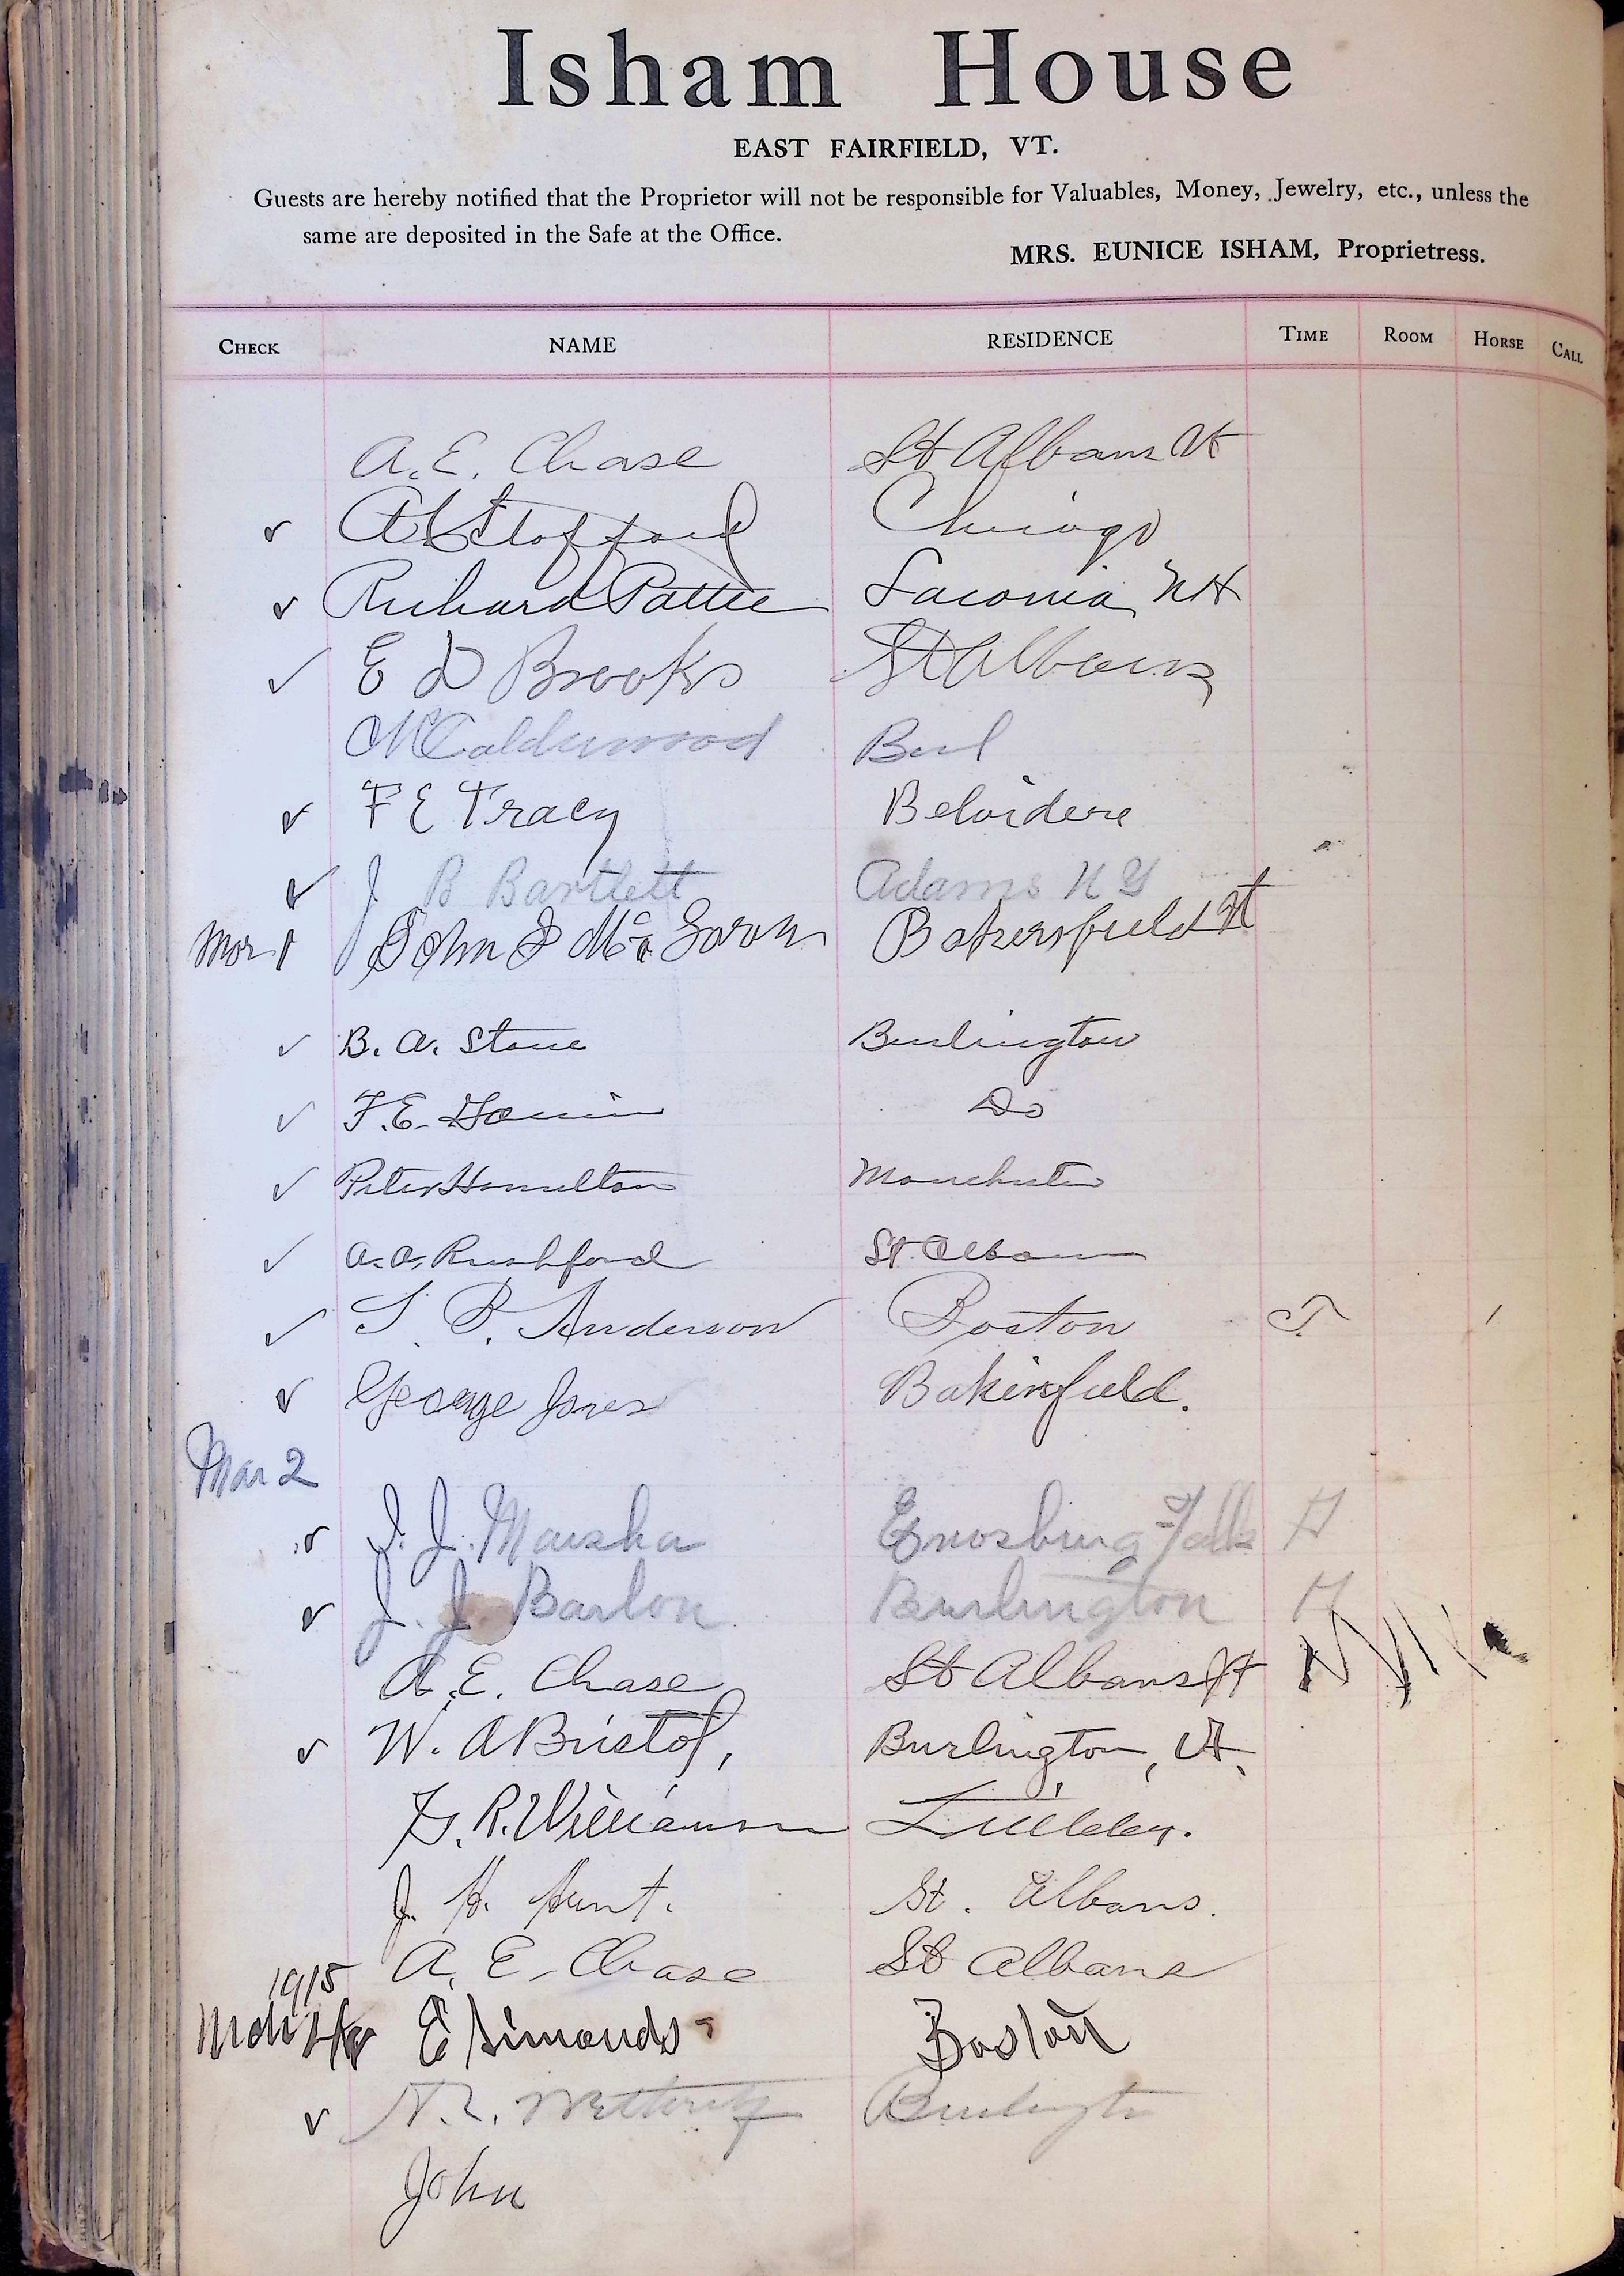 Isham House
EAST FAIRFIELD, VT.
Guests are hereby notified that the Proprietor will not be responsible for Valuables, Money, Jewelry, etc., unless the
same are deposited in the Safe at the Office.
MRS. EUNICE ISHAM, Proprietress.
CHECK NAME RESIDENCE TIME ROOM HORSE CALL
A. E. Chase St Albans Vt
Chicago
Richard Pattee Laconia NH
E D Brooks St Albans
Calderwood Burl
F E Tracy Belvidere
J B Bartlett Adams N Y
Mar 1 John Bakersfield Vt
B. A. Stone Burlington
F. E. Do
Peter Hamilton Manchester
A. A. Rushford St Albans
S. P. Anderson Boston T
George Jones Bakersfield.
Mar 2
J. J. Enosburg Falls H
J. J. Barlow Burlington H
A. E. Chase St Albans Vt
W. A Bristol, Burlington, Vt.
R. Williamson
J. H. Hunt. St. Albans.
A. E. Chase St Albans
1915
Mch E Simonds Boston
Burlington
John